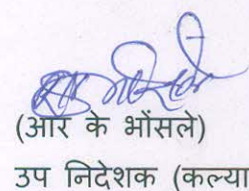 (आर के भोंसले)
उप निदेशक (कल्या